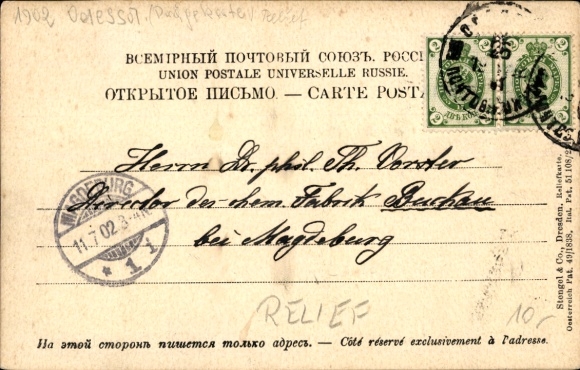 1902 Odessa! Relief
ВСЕМІРНЫЙ ПОЧТОВЫЙ СОЮЗЪ. РОСС
UNION POSTALE UNIVERSELLE RUSSIE.
ОТКРЫТОЕ ПИСЬМО. — CARTE POSTA
Herrn Dr. phil. Th. Vorster
Director der chem. Fabrik Buckau
bei Magdeburg
MAGDEBURG
11.7.02. 3-4N.
* 1 j
RELIEF
10,-
На этой сторонѣ пишется только адресъ. — Côté réservé exclusivement à l'adresse.
Stengel & Co., Dresden, Reliefkarte.
Oesterreich Pat. 49|1838, Ital. Pat. 51108/2